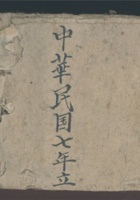 中華民国七年立